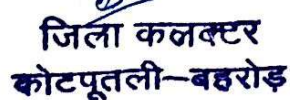 जिला कलक्टर
कोटपूतली-बहरोड़